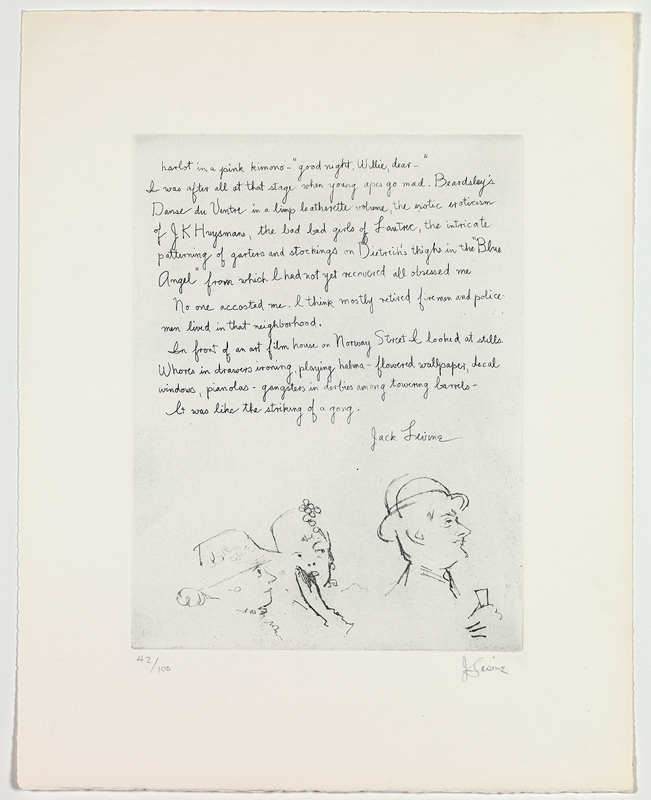 harlot in a pink kimono - "good night, Willie, dear - "
I was after all at that stage when young apes go mad. Beardsley's
Danse du Ventre in a limp leatherette volume, the exotic eroticism
of J K Huysmans, the bad bad girls of Lautrec, the intricate
patterning of garters and stockings on Dietrich's thighs in the "Blue
Angel" from which I had not yet recovered all obsessed me
No one accosted me. I think mostly retired firemen and police-
men lived in that neighborhood.
In front of an art film house on Norway Street I looked at stills.
Whores in drawers ironing, playing halma - flowered wallpaper, decal
windows, pianolas - gangsters in derbies among towering barrels -
It was like the striking of a gong.
Jack Levine
42/100
J Levine